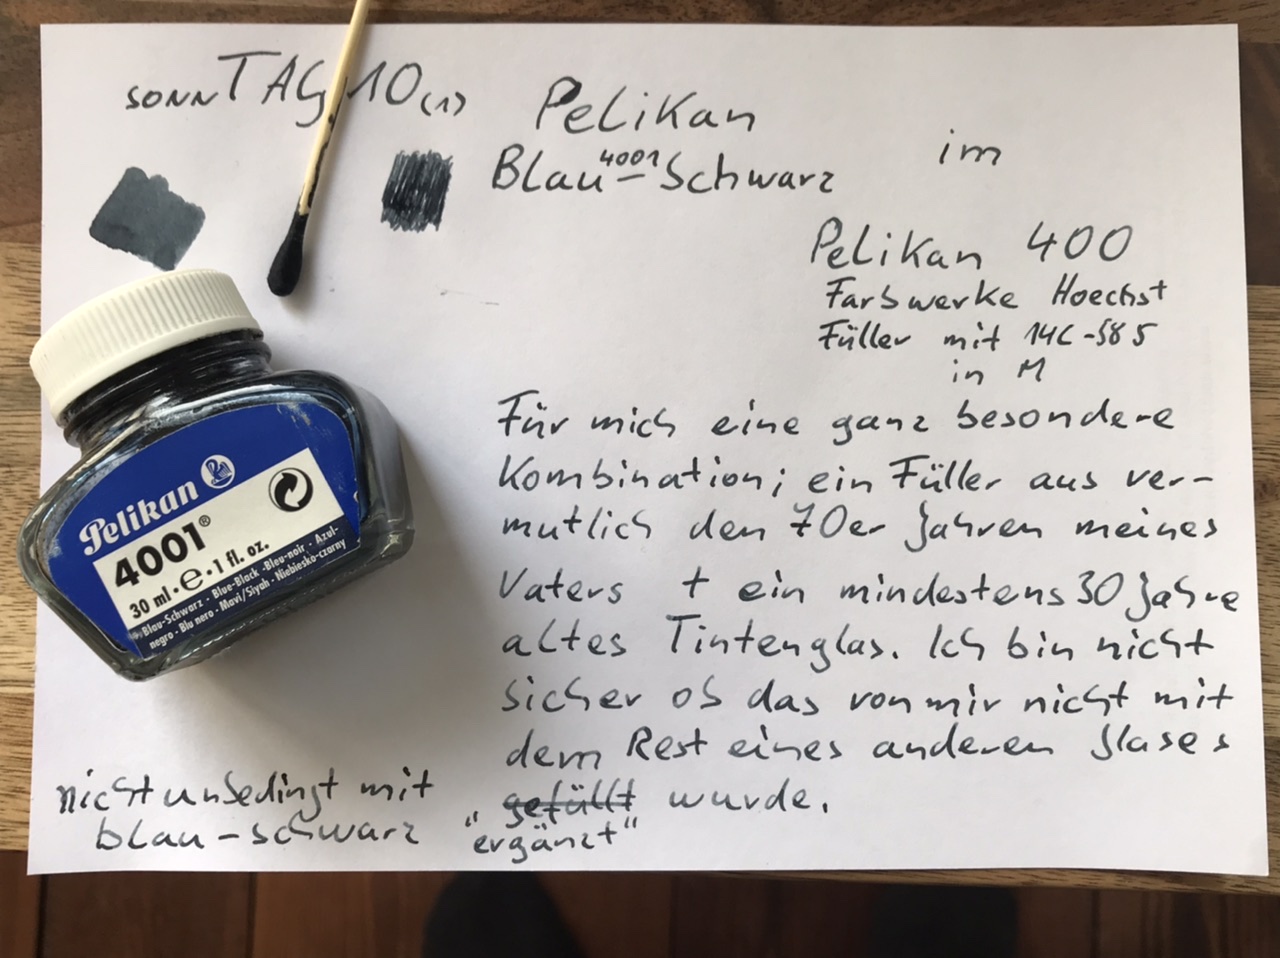 sonnTAG 10 (1)
Pelikan
4001
Blau-Schwarz
im
Pelikan 400
Farbwerke Hoechst
Füller mit 14C-585
in M
Für mich eine ganz besondere
Kombination; ein Füller aus ver-
mutlich den 70er Jahren meines
Vaters + ein mindestens 30 Jahre
altes Tintenglas. Ich bin nicht
sicher ob das von mir nicht mit
dem Rest eines anderen Glases
gefüllt wurde.
"ergänzt"
nicht unbedingt mit
blau-schwarz
Pelikan
4001®
30 ml · e · 1 fl. oz.
Blau-Schwarz · Blue-Black · Bleu-noir · Azul-
negro · Blu nero · Mavi/Siyah · Niebiesko-czarny